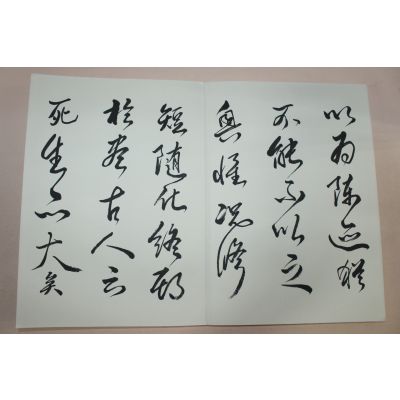 以為陳迹猶
不能不以之
興懷況脩
短隨化終期
於盡古人云
死生亦大矣